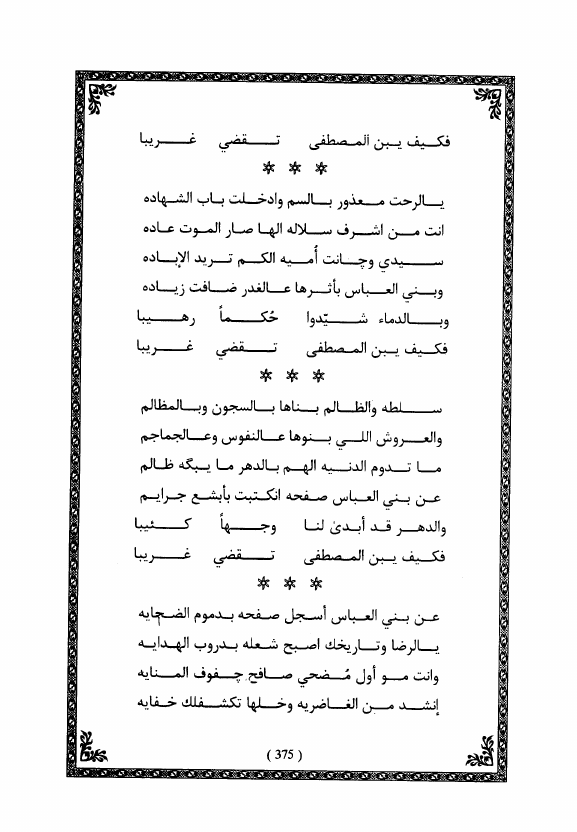 فكيف يبن المصطفى تقضي غريبا
* * *
يالرحت معذور بالسم وادخلت باب الشهاده
انت من اشرف سلاله الها صار الموت عاده
سيدي وچانت أميه الكم تريد الإباده
وبني العباس بأثرها عالغدر ضافت زياده
وبالدماء شيّدوا حُكماً رهيبا
فكيف يبن المصطفى تقضي غريبا
* * *
سلطه والظالم بناها بالسجون وبالمظالم
والعروش اللي بنوها عالنفوس وعالجماجم
ما تدوم الدنيه الهم بالدهر ما يبگه ظالم
عن بني العباس صفحه انكتبت بأبشع جرايم
والدهر قد أبدىٰ لنا وجهاً كئيبا
فكيف يبن المصطفى تقضي غريبا
* * *
عن بني العباس أسجل صفحه بدموم الضحايه
يالرضا وتاريخك اصبح شعله بدروب الهدايه
وانت مو أول مُضحي صافح چفوف المنايه
إنشد من الغاضريه وخلها تكشفلك خفايه
( 375 )